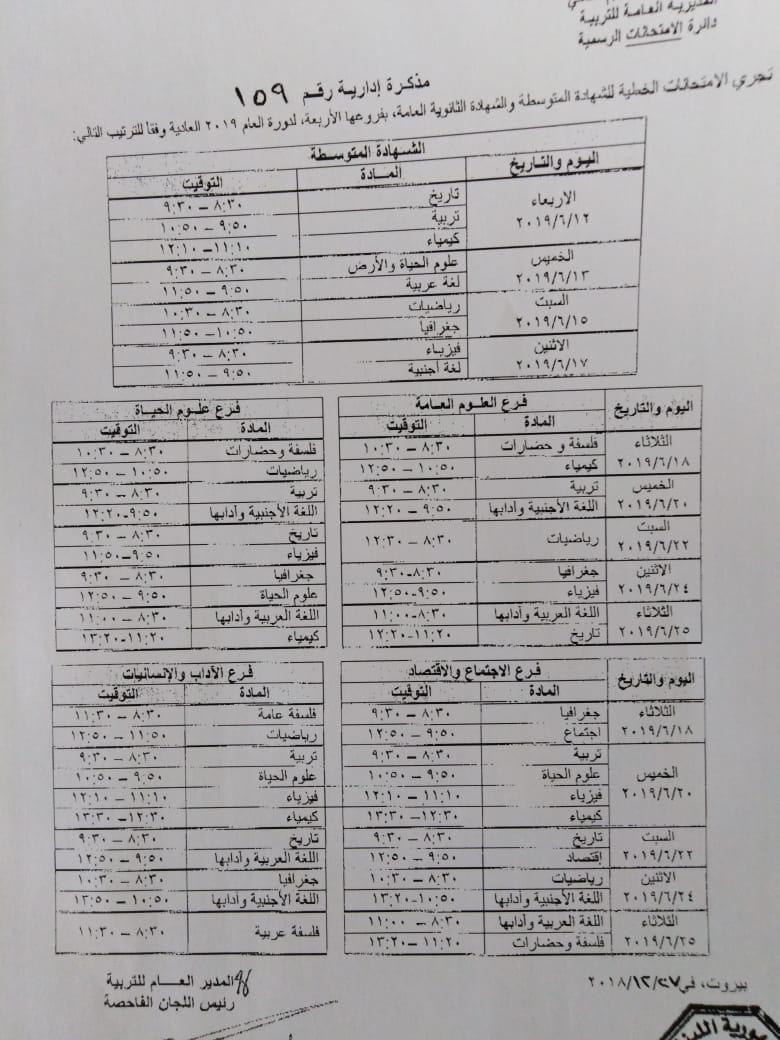 المديرية العامة للتربية
دائرة الامتحانات الرسمية
مذكرة إدارية رقم ١٥٩
تجري الامتحانات الخطية للشهادة المتوسطة والشهادة الثانوية العامة، بفروعها الأربعة، لدورة العام ٢٠١٩ العادية وفقاً للترتيب التالي:
اليوم والتاريخ الشهادة المتوسطة
المادة التوقيت
الاربعاء ٢٠١٩/٦/١٢ تاريخ ٨:٣٠ – ٩:٣٠
تربية ٩:٥٠ – ١٠:٥٠
كيمياء ١١:١٠ – ١٢:١٠
الخميس ٢٠١٩/٦/١٣ علوم الحياة والأرض ٨:٣٠ – ٩:٣٠
لغة عربية ٩:٥٠ – ١١:٥٠
السبت ٢٠١٩/٦/١٥ رياضيات ٨:٣٠ – ١٠:٣٠
جغرافيا ١٠:٥٠ – ١١:٥٠
الاثنين ٢٠١٩/٦/١٧ فيزياء ٨:٣٠ – ٩:٣٠
لغة أجنبية ٩:٥٠ – ١١:٥٠
اليوم والتاريخ فرع العلوم العامة فرع علوم الحياة
المادة التوقيت المادة التوقيت
الثلاثاء ٢٠١٩/٦/١٨ فلسفة و حضارات ٨:٣٠ – ١٠:٣٠ فلسفة وحضارات ٨:٣٠ – ١٠:٣٠
كيمياء ١٠:٥٠ – ١٢:٥٠ رياضيات ١٠:٥٠ – ١٢:٥٠
الخميس ٢٠١٩/٦/٢٠ تربية ٨:٣٠ – ٩:٣٠ تربية ٨:٣٠ – ٩:٣٠
اللغة الأجنبية وأدابها ٩:٥٠ – ١٢:٢٠ اللغة الأجنبية وأدابها ٩:٥٠–١٢:٢٠
السبت ٢٠١٩/٦/٢٢ رياضيات ٨:٣٠ – ١٢:٣٠ تاريخ ٨:٣٠ – ٩:٣٠
فيزياء ٩:٥٠–١١:٥٠
الاثنين ٢٠١٩/٦/٢٤ جغرافيا ٨:٣٠–٩:٣٠ جغرافيا ٨:٣٠ – ٩:٣٠
فيزياء ٩:٥٠–١٢:٥٠ علوم الحياة ٩:٥٠ – ١٢:٥٠
الثلاثاء ٢٠١٩/٦/٢٥ اللغة العربية وأدابها ٨:٣٠–١١:٠٠ اللغة العربية وأدابها ٨:٣٠ – ١١:٠٠
تاريخ ١١:٢٠–١٢:٢٠ كيمياء ١١:٢٠–١٣:٢٠
اليوم والتاريخ فرع الاجتماع والاقتصاد فرع الآداب والإنسانيات
المادة التوقيت المادة التوقيت
الثلاثاء ٢٠١٩/٦/١٨ جغرافيا ٨:٣٠ – ٩:٣٠ فلسفة عامة ٨:٣٠ – ١١:٣٠
اجتماع ٩:٥٠ – ١٢:٥٠ رياضيات ١١:٥٠ – ١٢:٥٠
الخميس ٢٠١٩/٦/٢٠ تربية ٨:٣٠ – ٩:٣٠ تربية ٨:٣٠ – ٩:٣٠
علوم الحياة ٩:٥٠ – ١٠:٥٠ علوم الحياة ٩:٥٠ – ١٠:٥٠
فيزياء ١١:١٠ – ١٢:١٠ فيزياء ١١:١٠ – ١٢:١٠
كيمياء ١٢:٣٠ – ١٣:٣٠ كيمياء ١٢:٣٠ – ١٣:٣٠
السبت ٢٠١٩/٦/٢٢ تاريخ ٨:٣٠ – ٩:٣٠ تاريخ ٨:٣٠ – ٩:٣٠
إقتصاد ٩:٥٠ – ١٢:٥٠ اللغة العربية وأدابها ٩:٥٠ – ١٢:٥٠
الاثنين ٢٠١٩/٦/٢٤ رياضيات ٨:٣٠ – ١٠:٣٠ جغرافيا ٨:٣٠ – ١٠:٣٠
اللغة الأجنبية وأدابها ١٠:٥٠–١٣:٢٠ اللغة الأجنبية وأدابها ١٠:٥٠ – ١٣:٥٠
الثلاثاء ٢٠١٩/٦/٢٥ اللغة العربية وأدابها ٨:٣٠ – ١١:٠٠ فلسفة عربية ٨:٣٠ – ١١:٣٠
فلسفة وحضارات ١١:٢٠ – ١٣:٢٠
بيروت، في ٢٠١٨/١٢/٢٧
المدير العام للتربية
رئيس اللجان الفاحصة